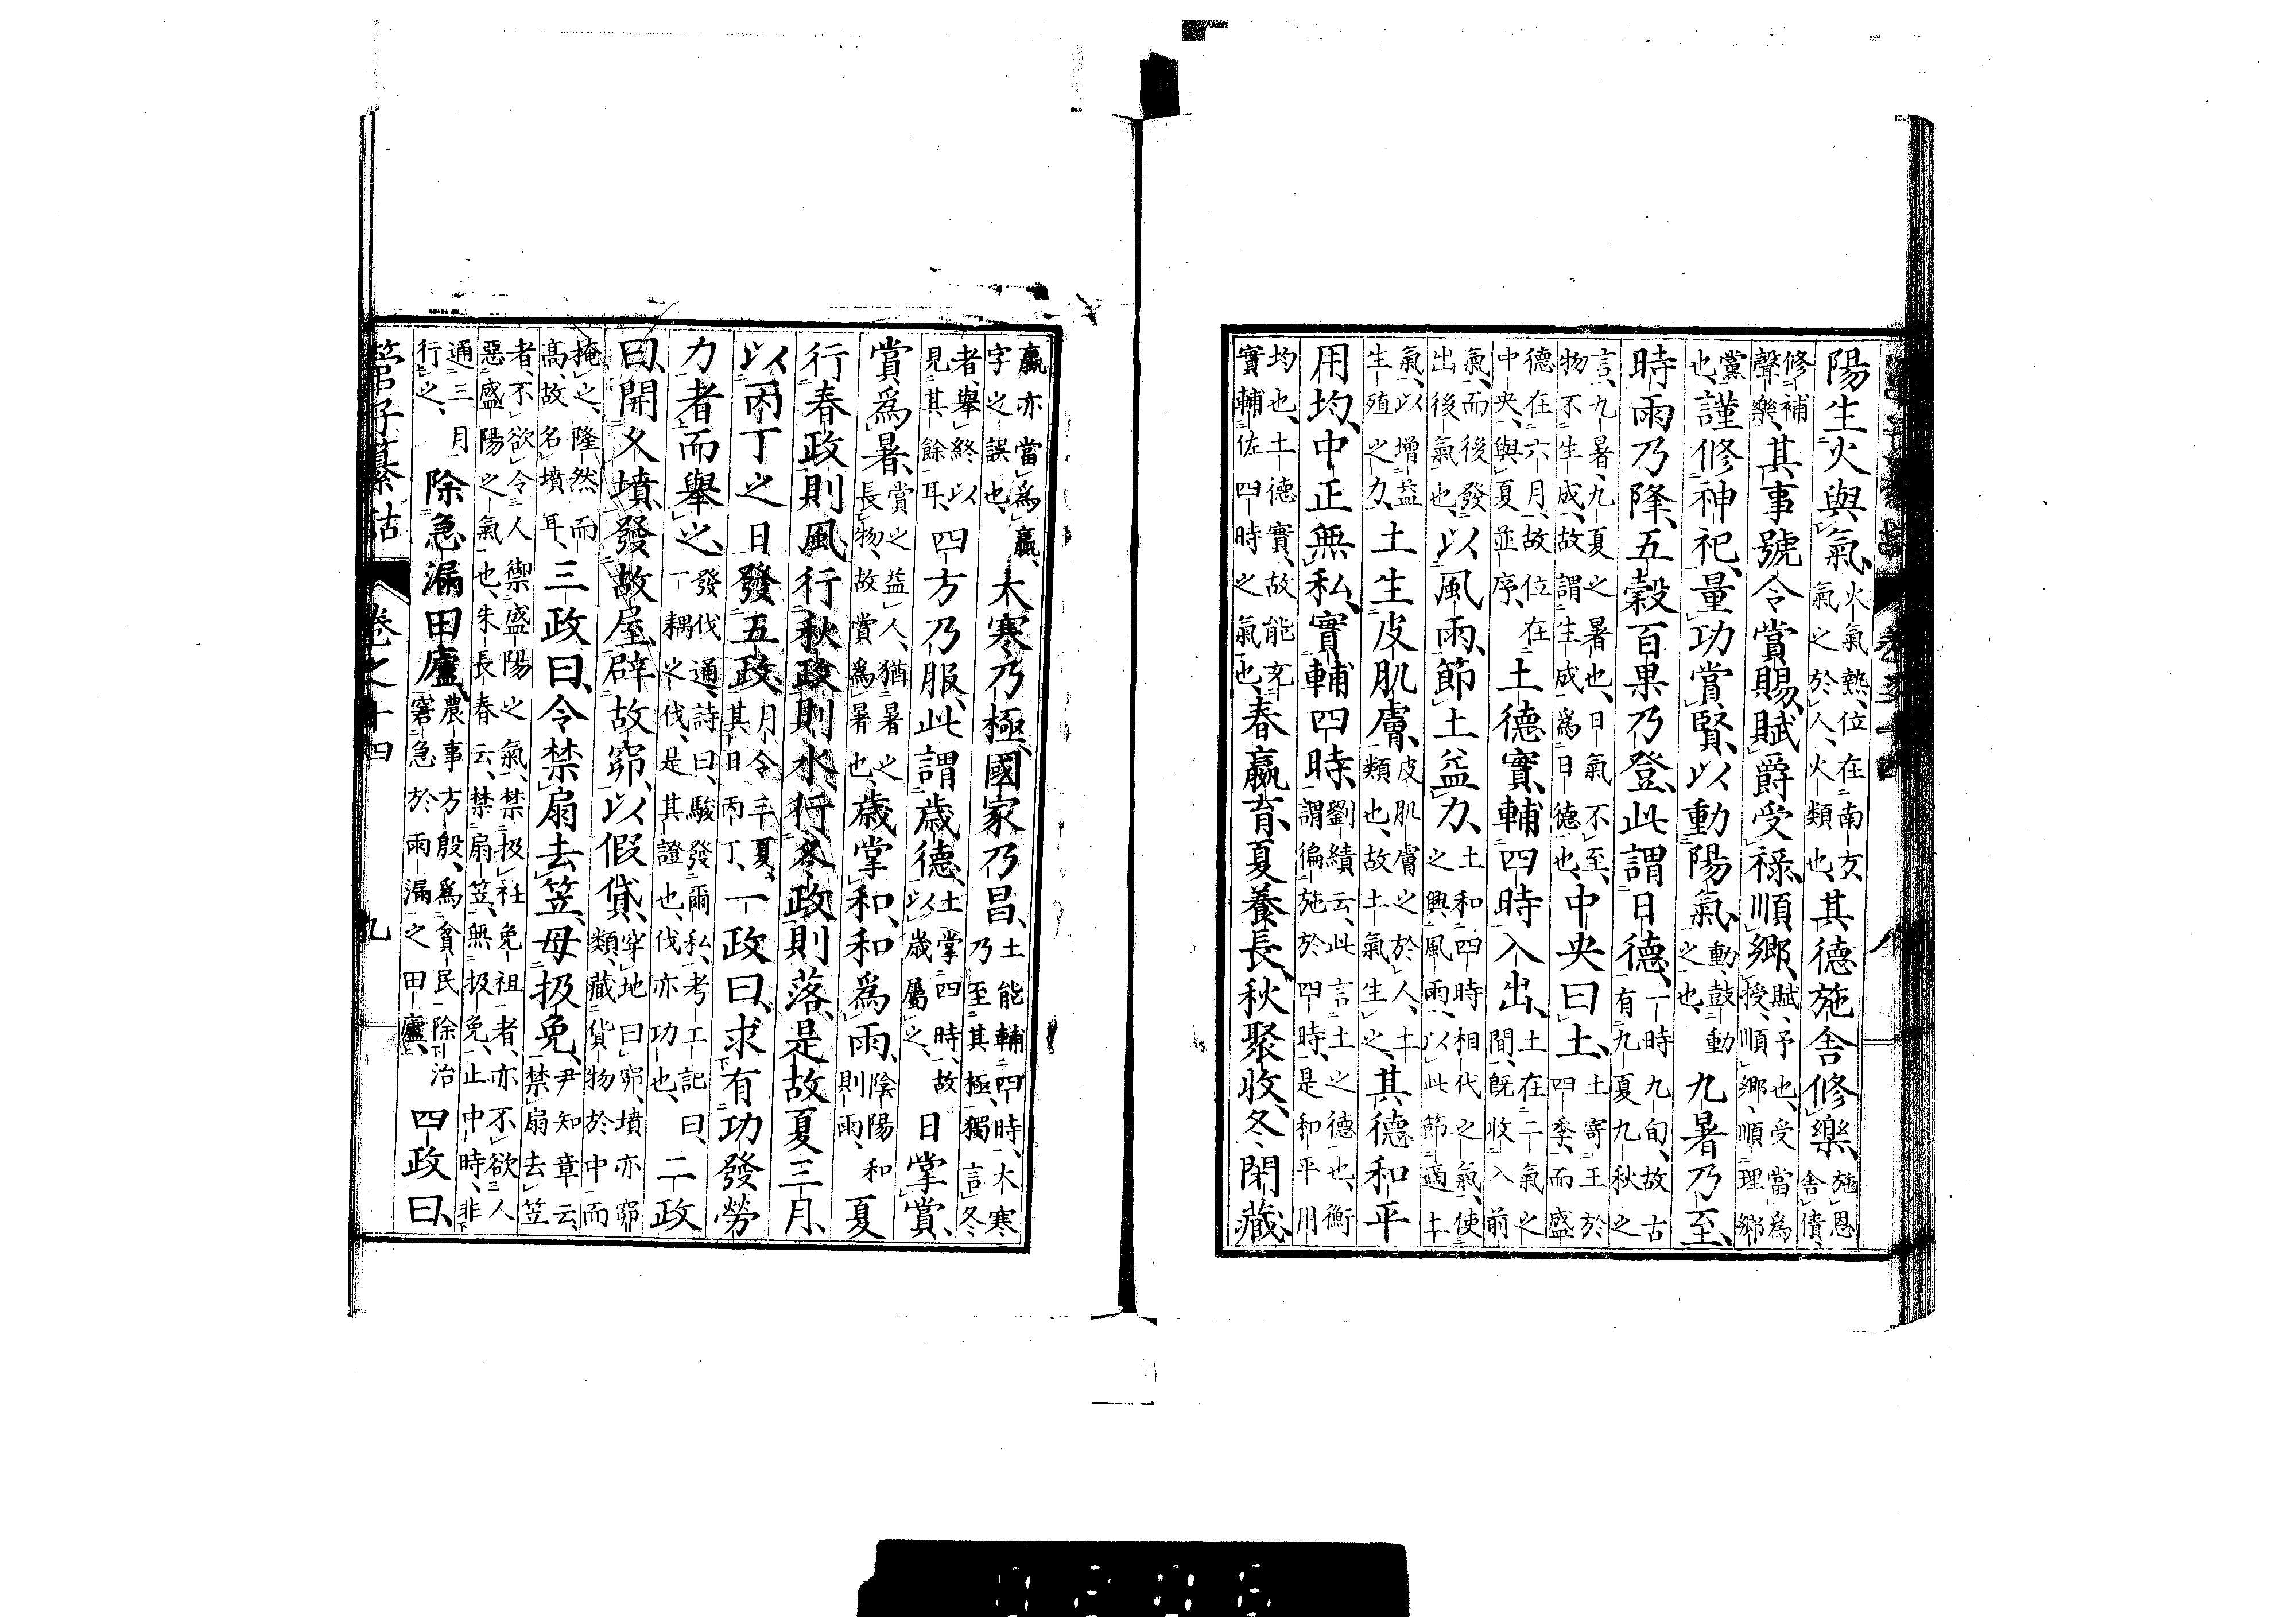 陽生火與氣、火氣熱、位在南方、氣之於人、火類也、其德施舍修樂、施恩舍債、
修補聲樂、其事號令賞賜、賦爵受祿、順鄉、賦、予也、受當爲授、順鄉、順理鄉
黨也、謹修神祀、量功賞賢、以動陽氣、動、鼓動之也、九暑乃至、
時雨乃降、五穀百果乃登、此謂日德、一時九旬、故古有九夏九秋之
言、九暑、九夏之暑也、日氣不至、物不生成、故謂生成爲日德也、中央曰土、土寄王於四季、而盛
德在六月、故位在中央、與夏並序、土德實輔四時入出、土在二氣之間、既收入前
氣、而後發出後氣也、以風雨、節土益力、土和四時相代之氣、使之興風雨、以此節適土
氣、以增益生殖之力、土生皮肌膚、皮肌膚之於人、土類也、故土氣生之、其德和平
用均、中正無私、實輔四時、劉績云、此言土之德也、衡謂徧施於四時、是和平用
均也、土德實、故能充實輔佐四時之氣也、春嬴育、夏養長、秋聚收、冬閉藏、
嬴亦當爲贏、字之誤也、大寒乃極、國家乃昌、土能輔四時、大寒乃至其極、獨言冬
者、舉終以見其餘耳、四方乃服、此謂歲德、土掌四時、故以歲屬之、日掌賞、
賞爲暑、賞之益人、猶暑之長物、故賞爲暑也、歲掌和、和爲雨、陰陽和則雨、夏
行春政則風、行秋政則水、行冬政則落、是故夏三月、
以丙丁之日發五政、月令三夏、其日丙丁、一政曰、求有功發勞
力者而舉之、發伐通、詩曰、駿發爾私、考工記曰、一耦之伐、是其證也、伐亦功也、二政
曰、開久墳、發故屋、辟故窌、以假貸、穿地曰窌、墳亦窌類、藏貨物於中而
掩之、隆然而高、故名墳耳、三政曰、令禁扇去笠、毋扱免、尹知章云禁扇去笠
者、不欲令人禦盛陽之氣、禁扱衽免袒者、亦不欲人惡盛陽之氣也、朱長春云、禁扇笠、無扱免、止中時、非
通三月行之、除急漏田廬、農事方殷、爲貧民除治窘急於雨漏之田廬、四政曰、
管子纂詁 卷之十四 九